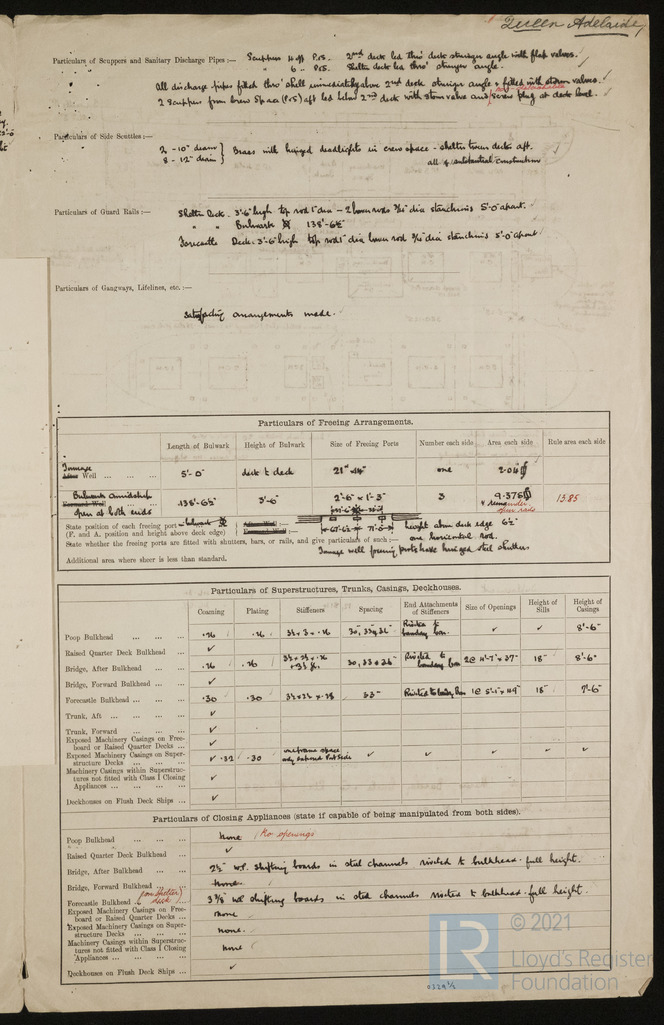 Queen Adelaide
Particulars of Scuppers and Sanitary Discharge Pipes :— Scuppers 4 off P&S. 2nd deck led thro' deck stringer angle with flap valves.
" 6 " P&S. Shelter deck led thro' stringer angle.
All discharge pipes fitted thro' shell immediately above 2nd deck stringer angle & fitted with storm valves.
2 Scuppers from crew space (P&S) aft led below 2nd deck with storm valve and screw plug at deck level.
Particulars of Side Scuttles :—
2 - 10" diam
8 - 12" diam } Brass with hinged deadlights in crew space - shelter tween decks aft.
all of substantial construction
Particulars of Guard Rails :— Shelter Deck. 3'-6" high top rod 1" dia - 2 lower rods dia stanchions 5'-0" apart.
" " Bulwark 138'-6½"
Forecastle Deck. 3'-6" high top rod 1" dia lower rod dia stanchions 5'-0" apart
Particulars of Gangways, Lifelines, etc. :—
Satisfactory arrangements made.
Particulars of Freeing Arrangements.
Length of Bulwark Height of Bulwark Size of Freeing Ports Number each side Area each side Rule area each side
Tonnage
After Well ... ... ... 5'-0" deck to deck 21" × 14" one 2.04
Bulwarks amidships
Forward Well
open at both ends 138'-6½" 3'-6" 2'-6" × 1'-3" 3 9.375 & remainder open rails 13.85
State position of each freeing port
(F. and A. position and height above deck edge) Bulwark After Well :— Forward Well :— height above deck edge 6½"
State whether the freeing ports are fitted with shutters, bars, or rails, and give particulars of such :— one horizontal rod.
Tonnage well freeing ports have hinged steel shutters
Additional area where sheer is less than standard.
Particulars of Superstructures, Trunks, Casings, Deckhouses.
Coaming Plating Stiffeners Spacing End Attachments of Stiffeners Size of Openings Height of Sills Height of Casings
Poop Bulkhead ... ... ... .26 .26 3½ × 3 × .26 30", 33 & 36" Riveted to boundary bar. ✓ ✓ 8'-6"
Raised Quarter Deck Bulkhead ... ✓
Bridge, After Bulkhead ... ... .26 .26 30, 33 & 26" Riveted to boundary bar 2 @ 4'-7" × 37" 18" 8'-6"
Bridge, Forward Bulkhead ... ... ✓
Forecastle Bulkhead ... ... ... .30 .30 3½ × 2½ × .28 33" Riveted to boundary bar 1 @ 5'-1" × 49" 18" 7'-6"
Trunk, Aft ... ... ... ... ✓
Trunk, Forward ... ... ... ✓
Exposed Machinery Casings on Free-
board or Raised Quarter Decks ... ✓
Exposed Machinery Casings on Super-
structure Decks ... ... ... ✓ .32 .30 one frame space only exposed Port Side ✓ ✓ ✓ ✓ ✓
Machinery Casings within Superstruc-
tures not fitted with Class I Closing
Appliances ... ... ... ... ✓
Deckhouses on Flush Deck Ships ... ✓
Particulars of Closing Appliances (state if capable of being manipulated from both sides).
Poop Bulkhead ... ... ... None (No openings)
Raised Quarter Deck Bulkhead ... ✓
Bridge, After Bulkhead ... ... 2½" W.P. shifting boards in steel channels riveted to bulkhead. full height.
Bridge, Forward Bulkhead ... None.
Forecastle Bulkhead (on shelter deck) ... 3⅜" W.P. shifting boards in steel channels riveted to bulkhead. full height.
Exposed Machinery Casings on Free-
board or Raised Quarter Decks ... None
Exposed Machinery Casings on Super-
structure Decks ... ... ... none.
Machinery Casings within Superstruc-
tures not fitted with Class I Closing
Appliances ... ... ... ... none
Deckhouses on Flush Deck Ships ... ✓
LR
© 2021
Lloyd's Register
Foundation